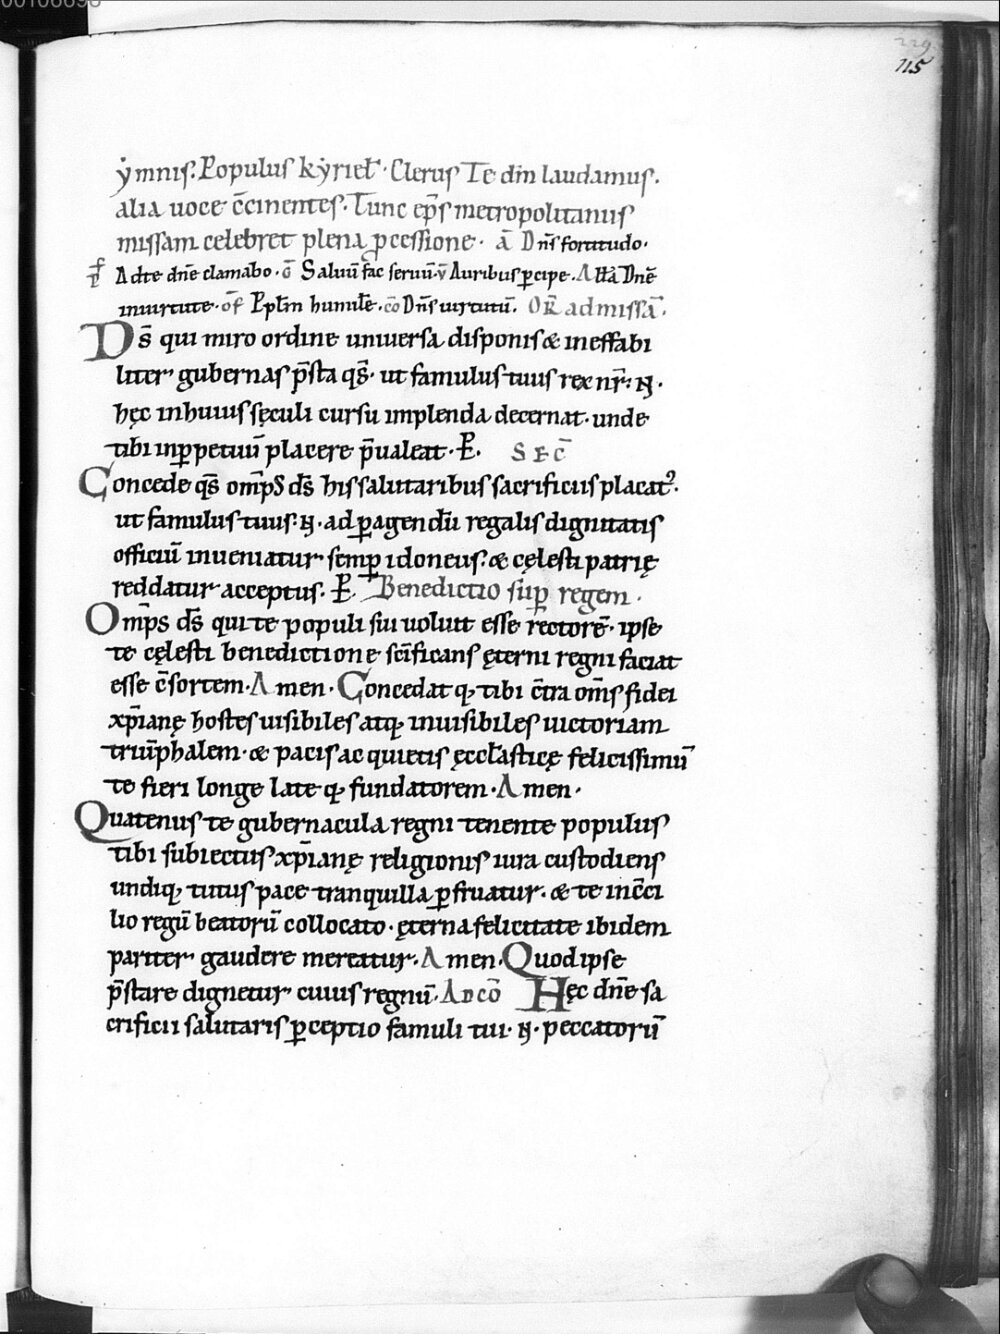 00106698
229
115
ẏmnis. Populus kẏriel̄. Clerus Te dm̄ laudamus.
alia uoce c̄cinentes. Tunc ep̄s metropolitanus
missam celebret plena ꝓcessione. ā Dn̄s fortitudo.
Ad te dn̄e clamabo. Saluū fac seruū. v̄ Auribus ꝑcipe. All̄a Dn̄e
in uirtute. of̄ Ppl̄m humilē. cō Dn̄s uirtutū. Or̄ ad missā.
Ds̄ qui miro ordine uniuersa disponis & ineffabi
liter gubernas p̄sta qs̄. ut famulus tuus rex nr̄. N.
hęc in huius sęculi cursu implenda decernat. unde
tibi inꝑpetuū placere p̄ualeat. P. SEC̄
Concede qs̄ omp̄s ds̄ his salutaribus sacrificiis placatꝰ.
ut famulus tuus. N. ad ꝑagendū regalis dignitatis
officiū inueniatur semꝑ idoneus. & cęlesti patrię
reddatur acceptus. P. Benedictio suꝑ regem.
Omp̄s ds̄ qui te populi sui uoluit esse rectorē. ipse
te cęlesti benedictione sc̄ificans ęterni regni faciat
esse c̄sortem. Amen. Concedat qꝫ tibi c̄tra om̄s fidei
xp̄ianę hostes uisibiles atqꝫ inuisibiles uictoriam
triūphalem. & pacis ac quietis ęccl̄asticę felicissimū
te fieri longe late qꝫ fundatorem. Amen.
Quatenus te gubernacula regni tenente populus
tibi subiectus xp̄ianę religionis iura custodiens
undiqꝫ tutus pace tranquilla ꝑfruatur. & te in c̄ci
lio regū beatorū collocato. ęterna felicitate ibidem
pariter gaudere mereatur. Amen. Quod ipse
p̄stare dignetur cuius regnū. AD CŌ Hęc dn̄e sa
crificii salutaris ꝑceptio famuli tui. N. peccatorū